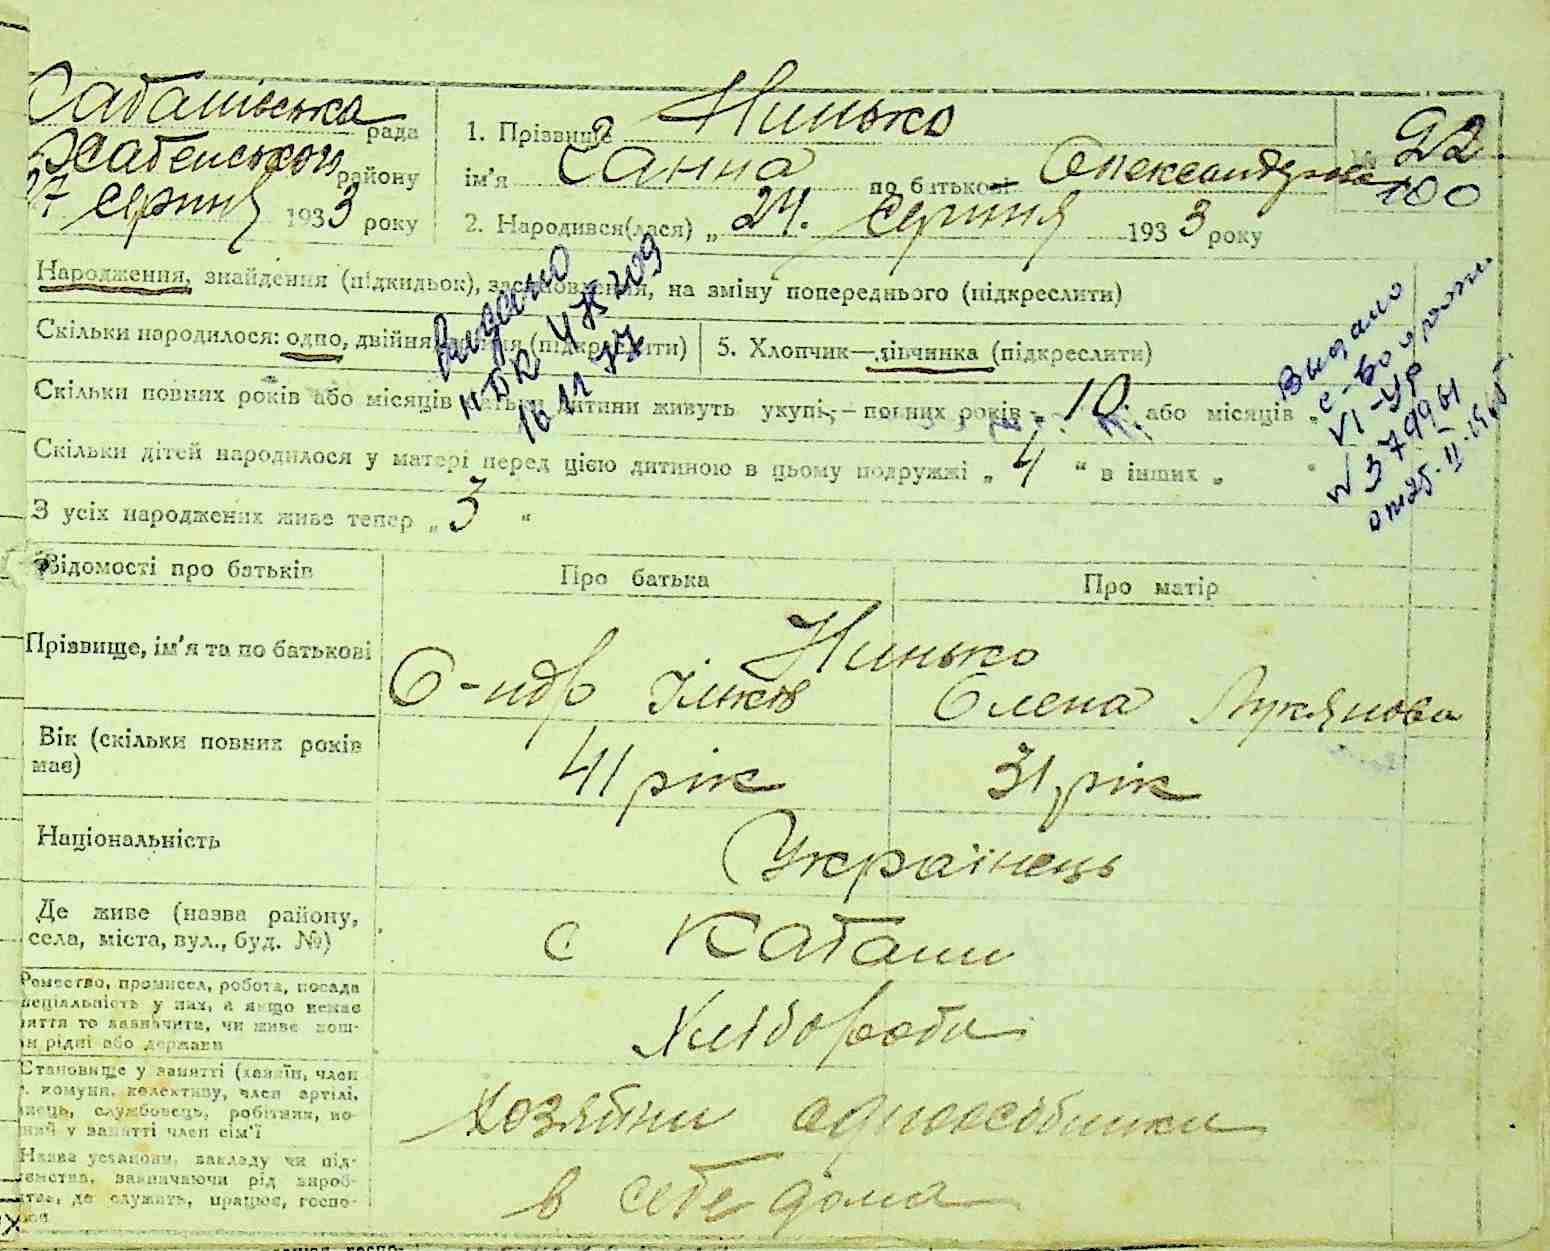 Кабанівська рада
району
27 серпня 1933 року
1. Прізвище Нинько
ім'я Ганна по батькові Олександрівна
92
100
2. Народився(лася) „ 24. серпня 1933 року
Народження, знайдення (підкидьок), засиновлення, на зміну попереднього (підкреслити)
Скільки народилося: одно, двійня, (підкреслити)
5. Хлопчик—дівчинка (підкреслити)
Скільки повних років або місяців батьки дитини живуть укупі,— повних років „ 10 або місяців „
Скільки дітей народилося у матері перед цією дитиною в цьому подружжі „ 4 “ в інших „ “
З усіх народжених живе тепер „ 3 “
Видано
16 11 77
Видано
VI-УР
N 379961
от 25-II-
Відомості про батьків
Про батька
Про матір
Прізвище, ім'я та по батькові
Нинько
О-ндр Ільков
Олена Лукянова
Вік (скільки повних років має)
41 рік
31 рік
Національність
Українець
Де живе (назва району,
села, міста, вул., буд. №)
с Кабани
Ремество, промисел, робота, посада
пеціяльність у них, а якщо немає
няття то зазначити, чи живе кош-
н рідні або держави
Хлібороби
Становище у занятті (хазяїн, член
комуни, колективу, член артілі,
службовець, робітник, по-
ний у занятті член сім'ї
Хозяйни одноосібники
Назва установи, закладу чи під-
ємства, зазначаючи рід вироб-
тва, де служить, працює, госпо-
в себе дома